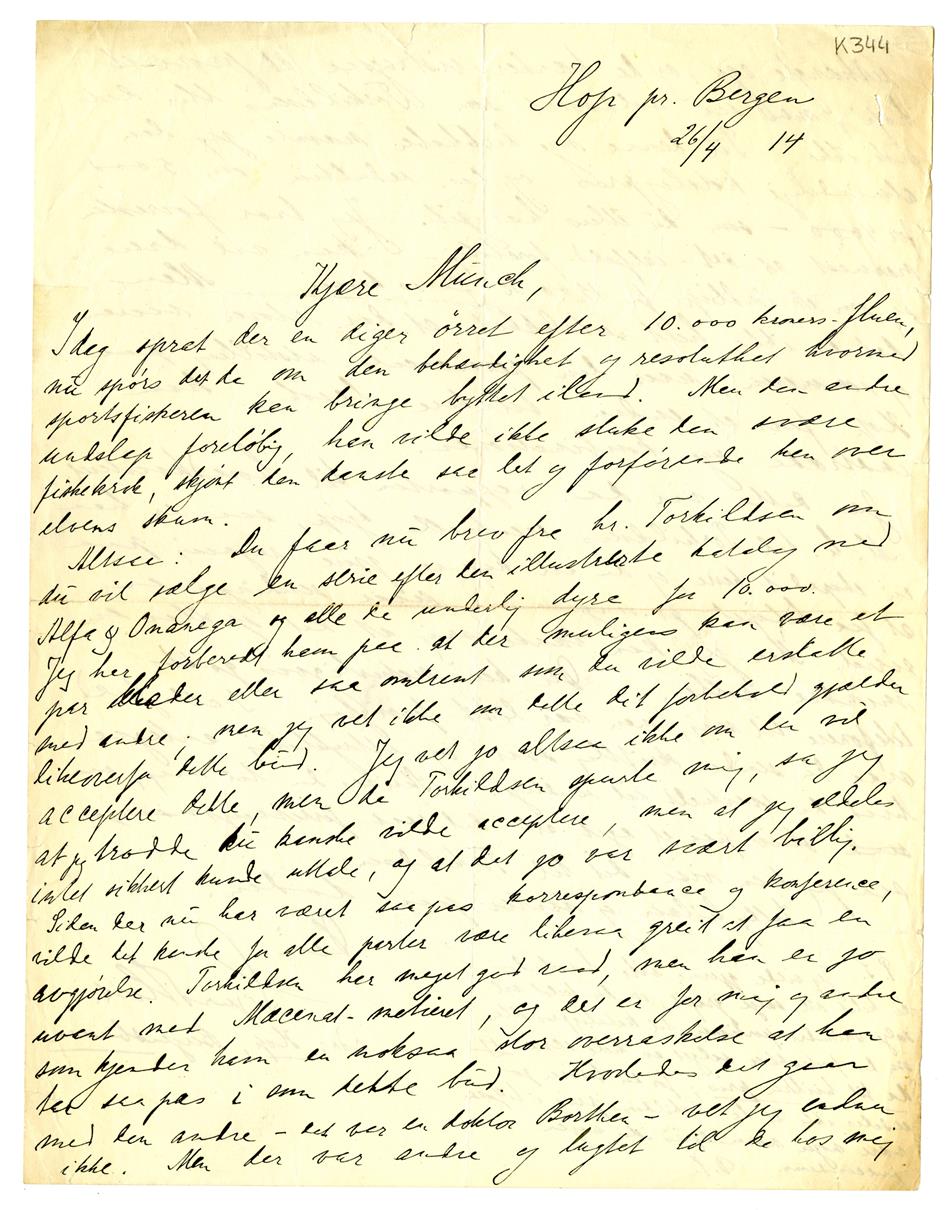 K344
Hop pr. Bergen
26/4 14
Kjære Munch,
Idag sprat der en diger örret efter 10.000 kroners-fluen,
nu spörs det da om den behændighet og resoluthet hvormed
sportsfiskeren kan bringe byttet iland. Men den andre
undslap foreløbig, han vilde ikke sluke den svære
fiskekrok, skjönt den danste saa let og forførende hen over
elvens skum.
Altsaa: Du faar nu brev fra hr. Torkildsen om
du vil sælge en serie efter den illustrerte katalog med
Alfa & Omanega og alle de underlig dyre for 10.000.
Jeg har forberedt ham paa at der muligens kan være et
par blader eller saa omtrent som du vilde erstatte
med andre; men jeg vet ikke om dette dit forbehold gjælder
likeoverfor dette bud. Jeg vet jo altsaa ikke om du vil
acceptere dette, men da Torkildsen spurte mig, sa jeg
at jeg trodde du kanske vilde acceptere, men at jeg aldeles
intet sikkert kunde uttale, og at det jo var svært billig.
Siden der nu har været saapas korrespondance og konference,
vilde det kanske for alle parter være likesaa greit at faa en
avgjørelse. Torkildsen har meget god raad, men han er jo
uvant med Mæcenat-metieret, og det er for mig og andre
som kjender ham en noksaa stor overraskelse at han
tar saapas i som dette bud. Hvorledes det gaar
med den andre – det var en doktor Borthen – vet jeg endnu
ikke. Men der var andre og lugtet til da hos mig